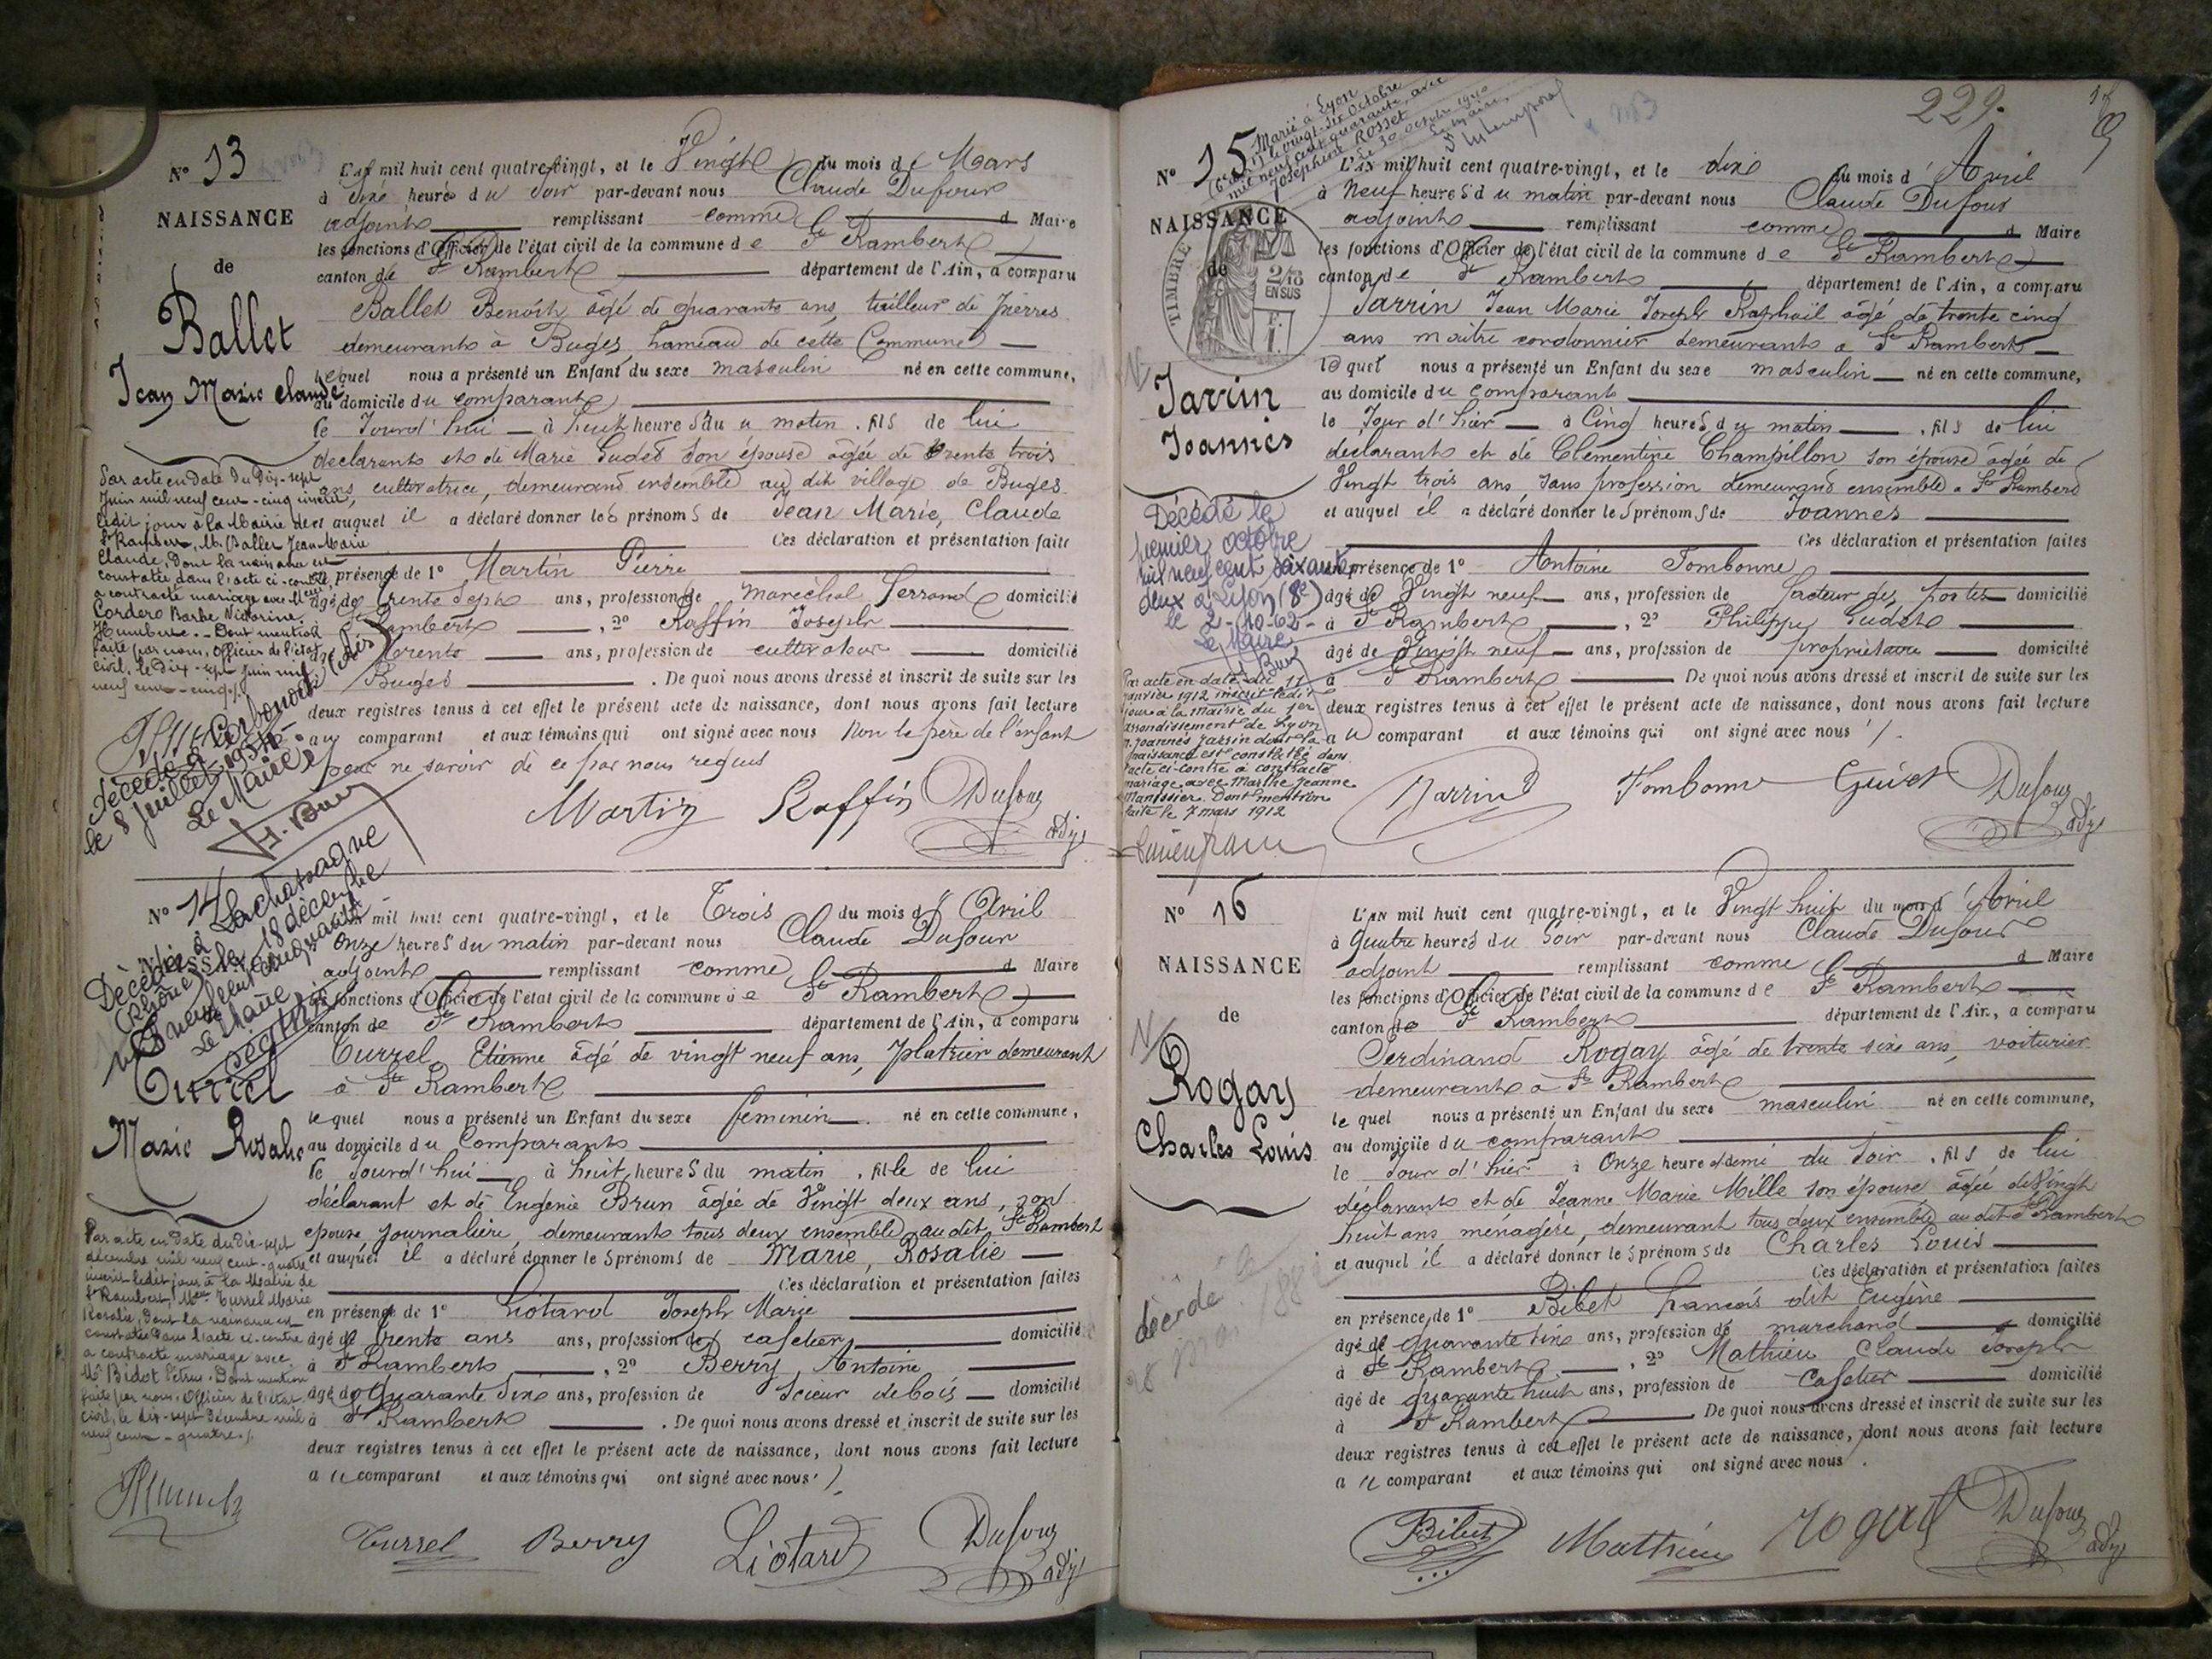 N° 13
L'an mil huit cent quatre-vingt, et le Vingt du mois de Mars
à Six heures du Soir par-devant nous Claude Dufour
NAISSANCE
adjoint remplissant comme d Maire
les fonctions d'Officier de l'état civil de la commune de St Rambert
de
canton de St Rambert département de l'Ain, a comparu
Ballet Benoît âgé de quarante ans, tailleur de pierres
Ballet
demeurant à Buges, hameau de cette Commune
lequel nous a présenté un Enfant du sexe masculin né en cette commune,
Jean Marie Claude
au domicile du comparant
le Jourd'hui à huit heures du matin, fils de lui
déclarant et de Marie Gudet son épouse âgée de trente trois
ans cultivatrice, demeurant ensemble au dit village de Buges
et auquel il a déclaré donner les prénoms de Jean Marie, Claude
Ces déclaration et présentation faite
en présence de 1° Martin Pierre
âgé de trente sept ans, profession de maréchal ferrand domicilié
à St Rambert, 2° Raffin Joseph
âgé de trente ans, profession de cultivateur domicilié
à Buges. De quoi nous avons dressé et inscrit de suite sur les
deux registres tenus à cet effet le présent acte de naissance, dont nous avons fait lecture
au comparant et aux témoins qui ont signé avec nous Non le père de l'enfant
pour ne savoir de ce par nous requis
Par acte en date du Dix-sept
Juin mil neuf cent-cinq inscrit,
ledit jour à la Mairie de
St Rambert, M. Ballet Jean-Marie
Claude, dont la naissance est
constatée dans l'acte ci-contre,
a contracté mariage avec Melle
Cordero Barbe Victorine
Humberte. - Dont mention
faite par nous, Officier de l'état
civil, le dix-sept Juin mil
neuf cent-cinq./.
Décédé à
le 8 Juillet 1954
Le Maire
Martin Raffin Dufour
adj
N° 14
L'an mil huit cent quatre-vingt, et le Trois du mois d'Avril
à Onze heures du matin par-devant nous Claude Dufour
adjoint remplissant comme d Maire
les fonctions d'Officier de l'état civil de la commune de St Rambert
canton de St Rambert département de l'Ain, a comparu
Décédée à Lachassagne
(Rhône) le 18 décembre
Le Maire
Turrel Etienne âgé de vingt neuf ans, platrier demeurant
Turrel
à St Rambert
lequel nous a présenté un Enfant du sexe feminin né en cette commune,
Marie Rosalie
au domicile du Comparant
le Jourd'hui à huit heures du matin, fille de lui
déclarant et de Eugénie Brun âgée de Vingt deux ans, son
épouse, journalière, demeurants tous deux ensemble au dit St Rambert
et auquel il a déclaré donner les prénoms de Marie, Rosalie
Ces déclaration et présentation faites
en présence de 1° Liotard Joseph Marie
âgé de trente ans ans, profession de cafetier domicilié
à St Rambert, 2° Berry Antoine
âgé de Quarante Six ans, profession de Scieur de bois domicilié
à St Rambert. De quoi nous avons dressé et inscrit de suite sur les
deux registres tenus à cet effet le présent acte de naissance, dont nous avons fait lecture
au comparant et aux témoins qui ont signé avec nous ./.
Par acte en date du dix-sept
décembre mil neuf cent-quatre
inscrit ledit jour à la Mairie de
St Rambert, Melle Turrel Marie
Rosalie, dont la naissance est
constatée dans l'acte ci-contre
a contracté mariage avec
Mr Bidot Pétrus. Dont mention
faite par nous, Officier de l'état
civil, le dix-sept décembre mil
neuf cent-quatre./.
Turrel Berry Liotard Dufour
adj
229.
N° 15
Marié à Lyon
le vingt-six Octobre
mil neuf cent quarante, avec
Joséphine Rosset
Le 30 octobre 1940
L'an mil huit cent quatre-vingt, et le dix du mois d'Avril
à Neuf heures du matin par-devant nous Claude Dufour
NAISSANCE
adjoint remplissant comme d Maire
les fonctions d'Officier de l'état civil de la commune de St Rambert
de
TIMBRE
2/10
EN SUS
canton de St Rambert département de l'Ain, a comparu
Jarrin Jean Marie Joseph Raphaël âgé de trente cinq
ans maître cordonnier demeurant à St Rambert
lequel nous a présenté un Enfant du sexe masculin né en cette commune,
Jarrin
Joannès
au domicile du comparant
le Jour d'hier à Cinq heures du matin, fils de lui
déclarant et de Clémentine Champillon son épouse âgée de
Vingt trois ans sans profession demeurants ensemble à St Rambert
et auquel il a déclaré donner les prénoms de Joannès
Ces déclaration et présentation faites
en présence de 1° Antoine Tombonne
âgé de Vingt neuf ans, profession de facteur des postes domicilié
à St Rambert, 2° Philippe Gudet
âgé de Vingt neuf ans, profession de propriétaire domicilié
à St Rambert De quoi nous avons dressé et inscrit de suite sur les
deux registres tenus à cet effet le présent acte de naissance, dont nous avons fait lecture
au comparant et aux témoins qui ont signé avec nous ./.
Décédé le
premier octobre
mil neuf cent soixante
deux à Lyon (8e)
le 2-10-62
Le Maire
Par acte en date du 11
janvier 1912 inscrit ledit
jour à la mairie du 1er
arrondissement de Lyon
M. Joannès Jarrin dont la
naissance est constatée dans
l'acte ci-contre a contracté
mariage avec Marthe Jeanne
Manissier. Dont mention
faite le 7 mars 1912
Jarrin Tombonne Dufour
adj
N° 16
L'an mil huit cent quatre-vingt, et le Vingt huit du mois d'Avril
à Quatre heures du Soir par-devant nous Claude Dufour
NAISSANCE
adjoint remplissant comme d Maire
les fonctions d'Officier de l'état civil de la commune de St Rambert
de
canton de St Rambert département de l'Ain, a comparu
Ferdinand Rogay âgé de trente six ans, voiturier
Rogay
demeurant à St Rambert
lequel nous a présenté un Enfant du sexe masculin né en cette commune,
Charles Louis
au domicile du comparant
le Jour d'hier à Onze heure et demi du Soir, fils de lui
déclarant et de Jeanne Marie Mille son épouse âgée de Vingt
huit ans ménagère, demeurant tous deux ensemble au dit St Rambert
et auquel il a déclaré donner les prénoms de Charles Louis
Ces déclaration et présentation faites
en présence de 1° Bibet François dit Eugène
âgé de quarante six ans, profession de marchand domicilié
à St Rambert, 2° Mathieu Claude Joseph
âgé de quarante huit ans, profession de Cafetier domicilié
à St Rambert De quoi nous avons dressé et inscrit de suite sur les
deux registres tenus à cet effet le présent acte de naissance, dont nous avons fait lecture
au comparant et aux témoins qui ont signé avec nous.
décédé le
Bibet Mathieu Rogay Dufour
adj